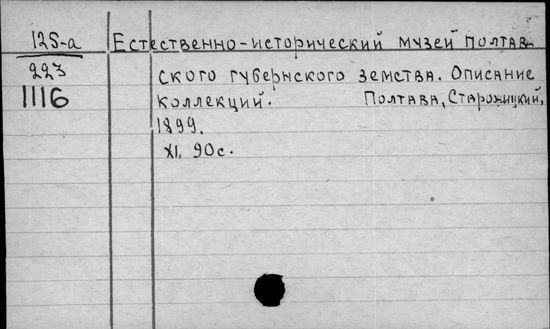 125-а Естественно-исторический музей Полтав-
223 ского губернского земства. Описание
1116 коллекций. Полтава, Старожицкий,
1899.
XI, 90с.